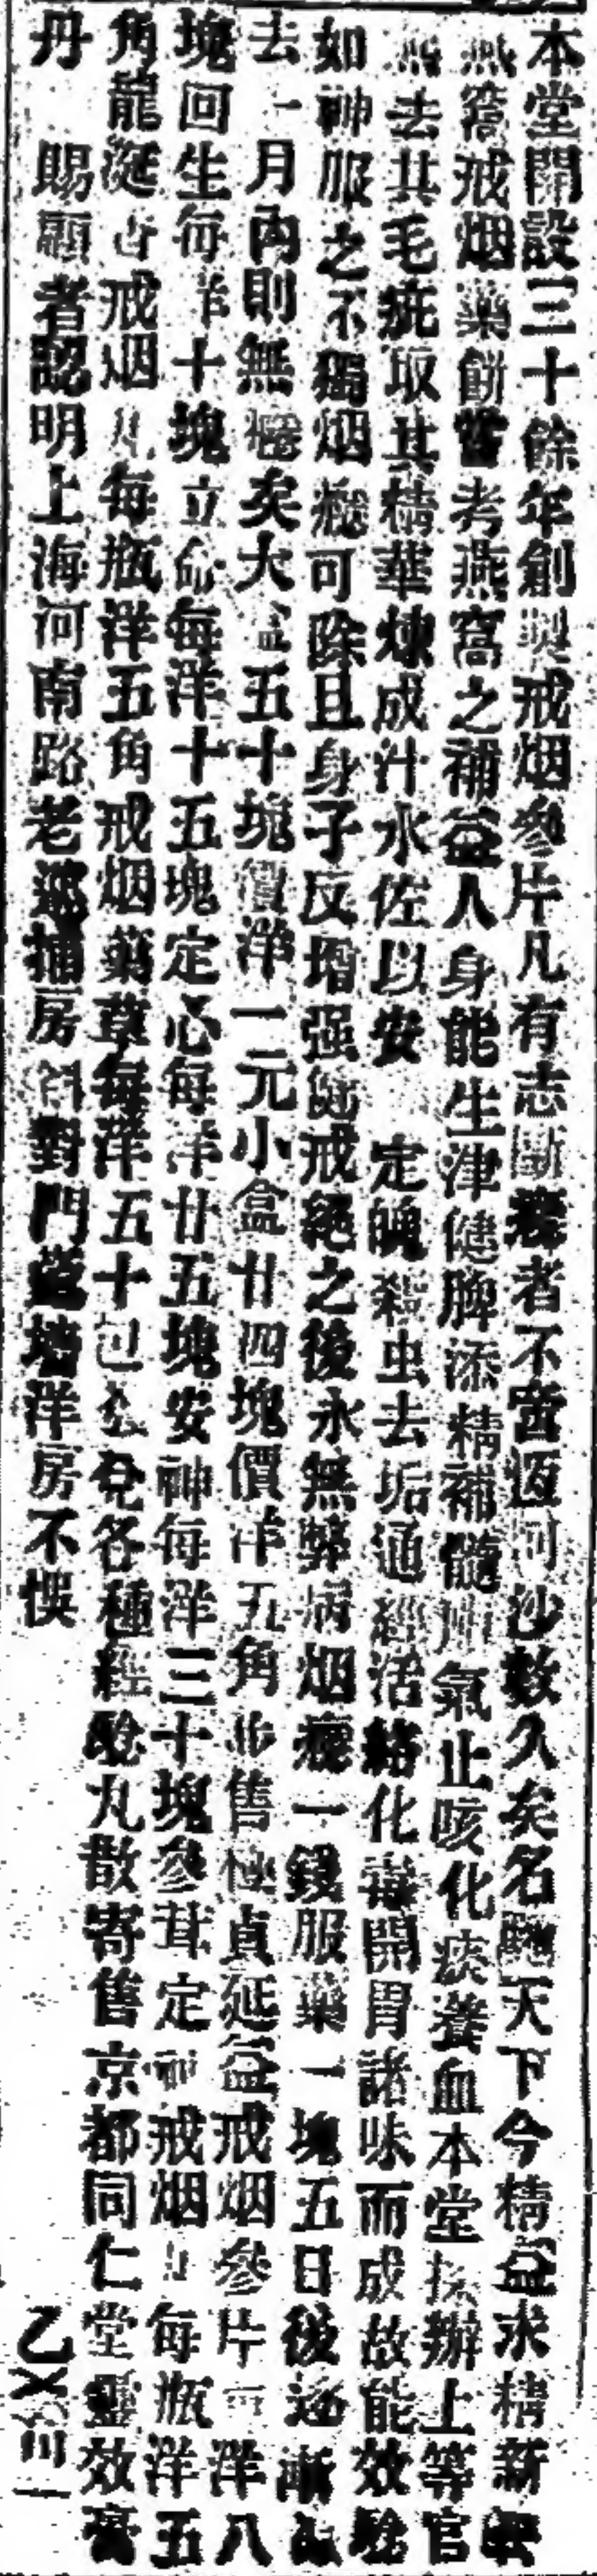 本堂開設三十餘年創製戒烟參片凡有志斷癮者不啻恆河沙數久矣名馳天下今精益求精新製
燕窩戒烟藥餅嘗考燕窩之補益人身能生津健脾添精補髓氣止咳化痰養血本堂採辦上等官
燕去其毛疵取其精華煉成汁水佐以安定魄殺虫去垢通經活絡化毒開胃諸味而成故能效驗
如神服之不獨烟癮可除且身子反增强健戒絕之後永無弊病烟癮一錢服藥一塊五日後逐漸減
去一月內則無癮矣大盒五十塊價洋一元小盒廿四塊價洋五角售極貞延益戒烟參片洋八
塊回生每洋十塊立命每洋十五塊定心每洋廿五塊安神每洋三十塊參茸定神戒烟每瓶洋五
角龍涎香戒烟丸每瓶洋五角戒烟藥草每洋五十包各種經驗丸散寄售京都同仁堂靈效膏
丹 賜顧者認明上海河南路老巡捕房斜對門牆洋房不悞